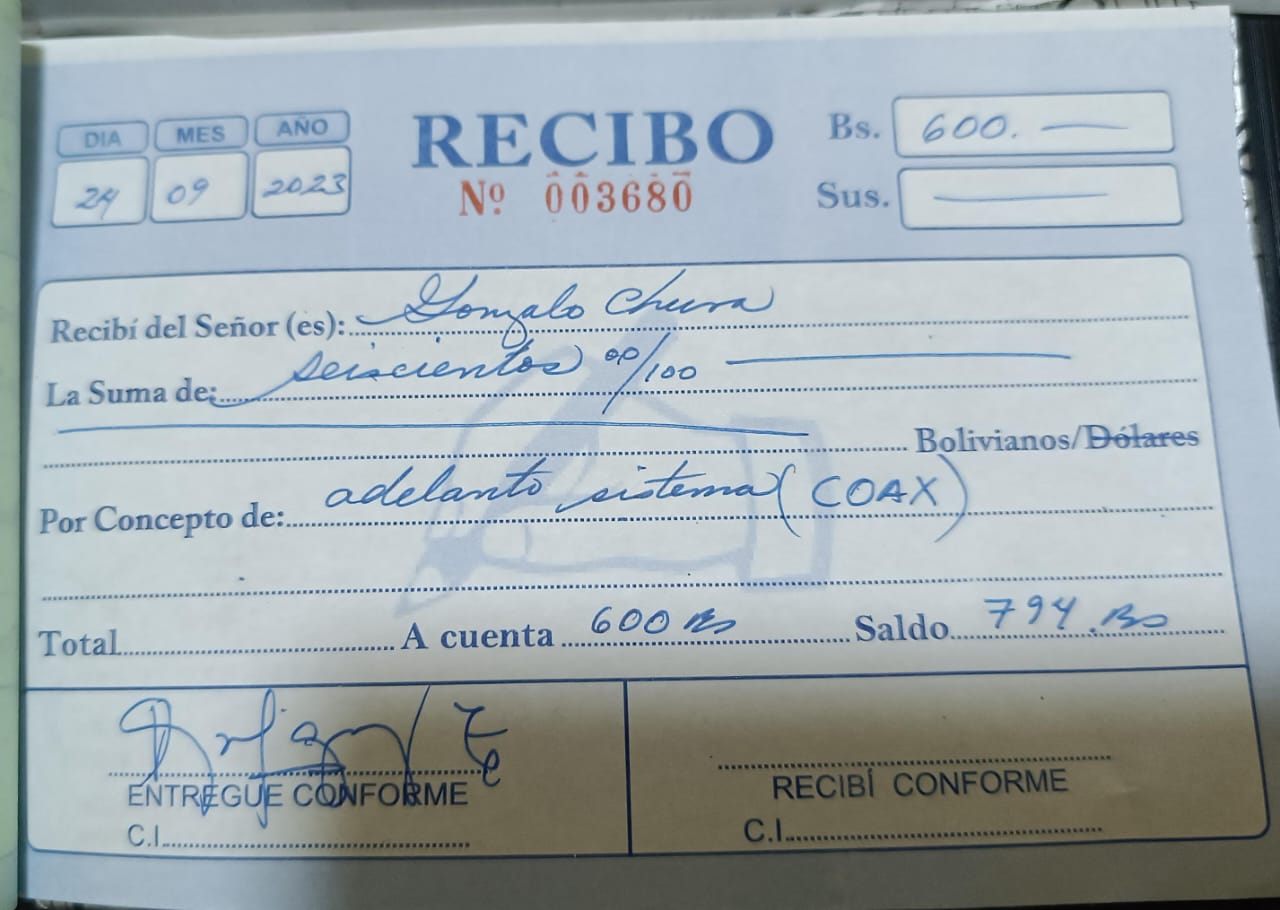 DIA MES AÑO
24 09 2023
RECIBO
Nº 003680
Bs. 600.
Sus.
Recibí del Señor (es): Gonzalo Chura
La Suma de: seiscientos 00/100
Bolivianos/Dólares
Por Concepto de: adelanto sistema (COAX)
Total A cuenta 600 Bs Saldo 794.Bs
ENTREGUE CONFORME
C.I.
RECIBÍ CONFORME
C.I.